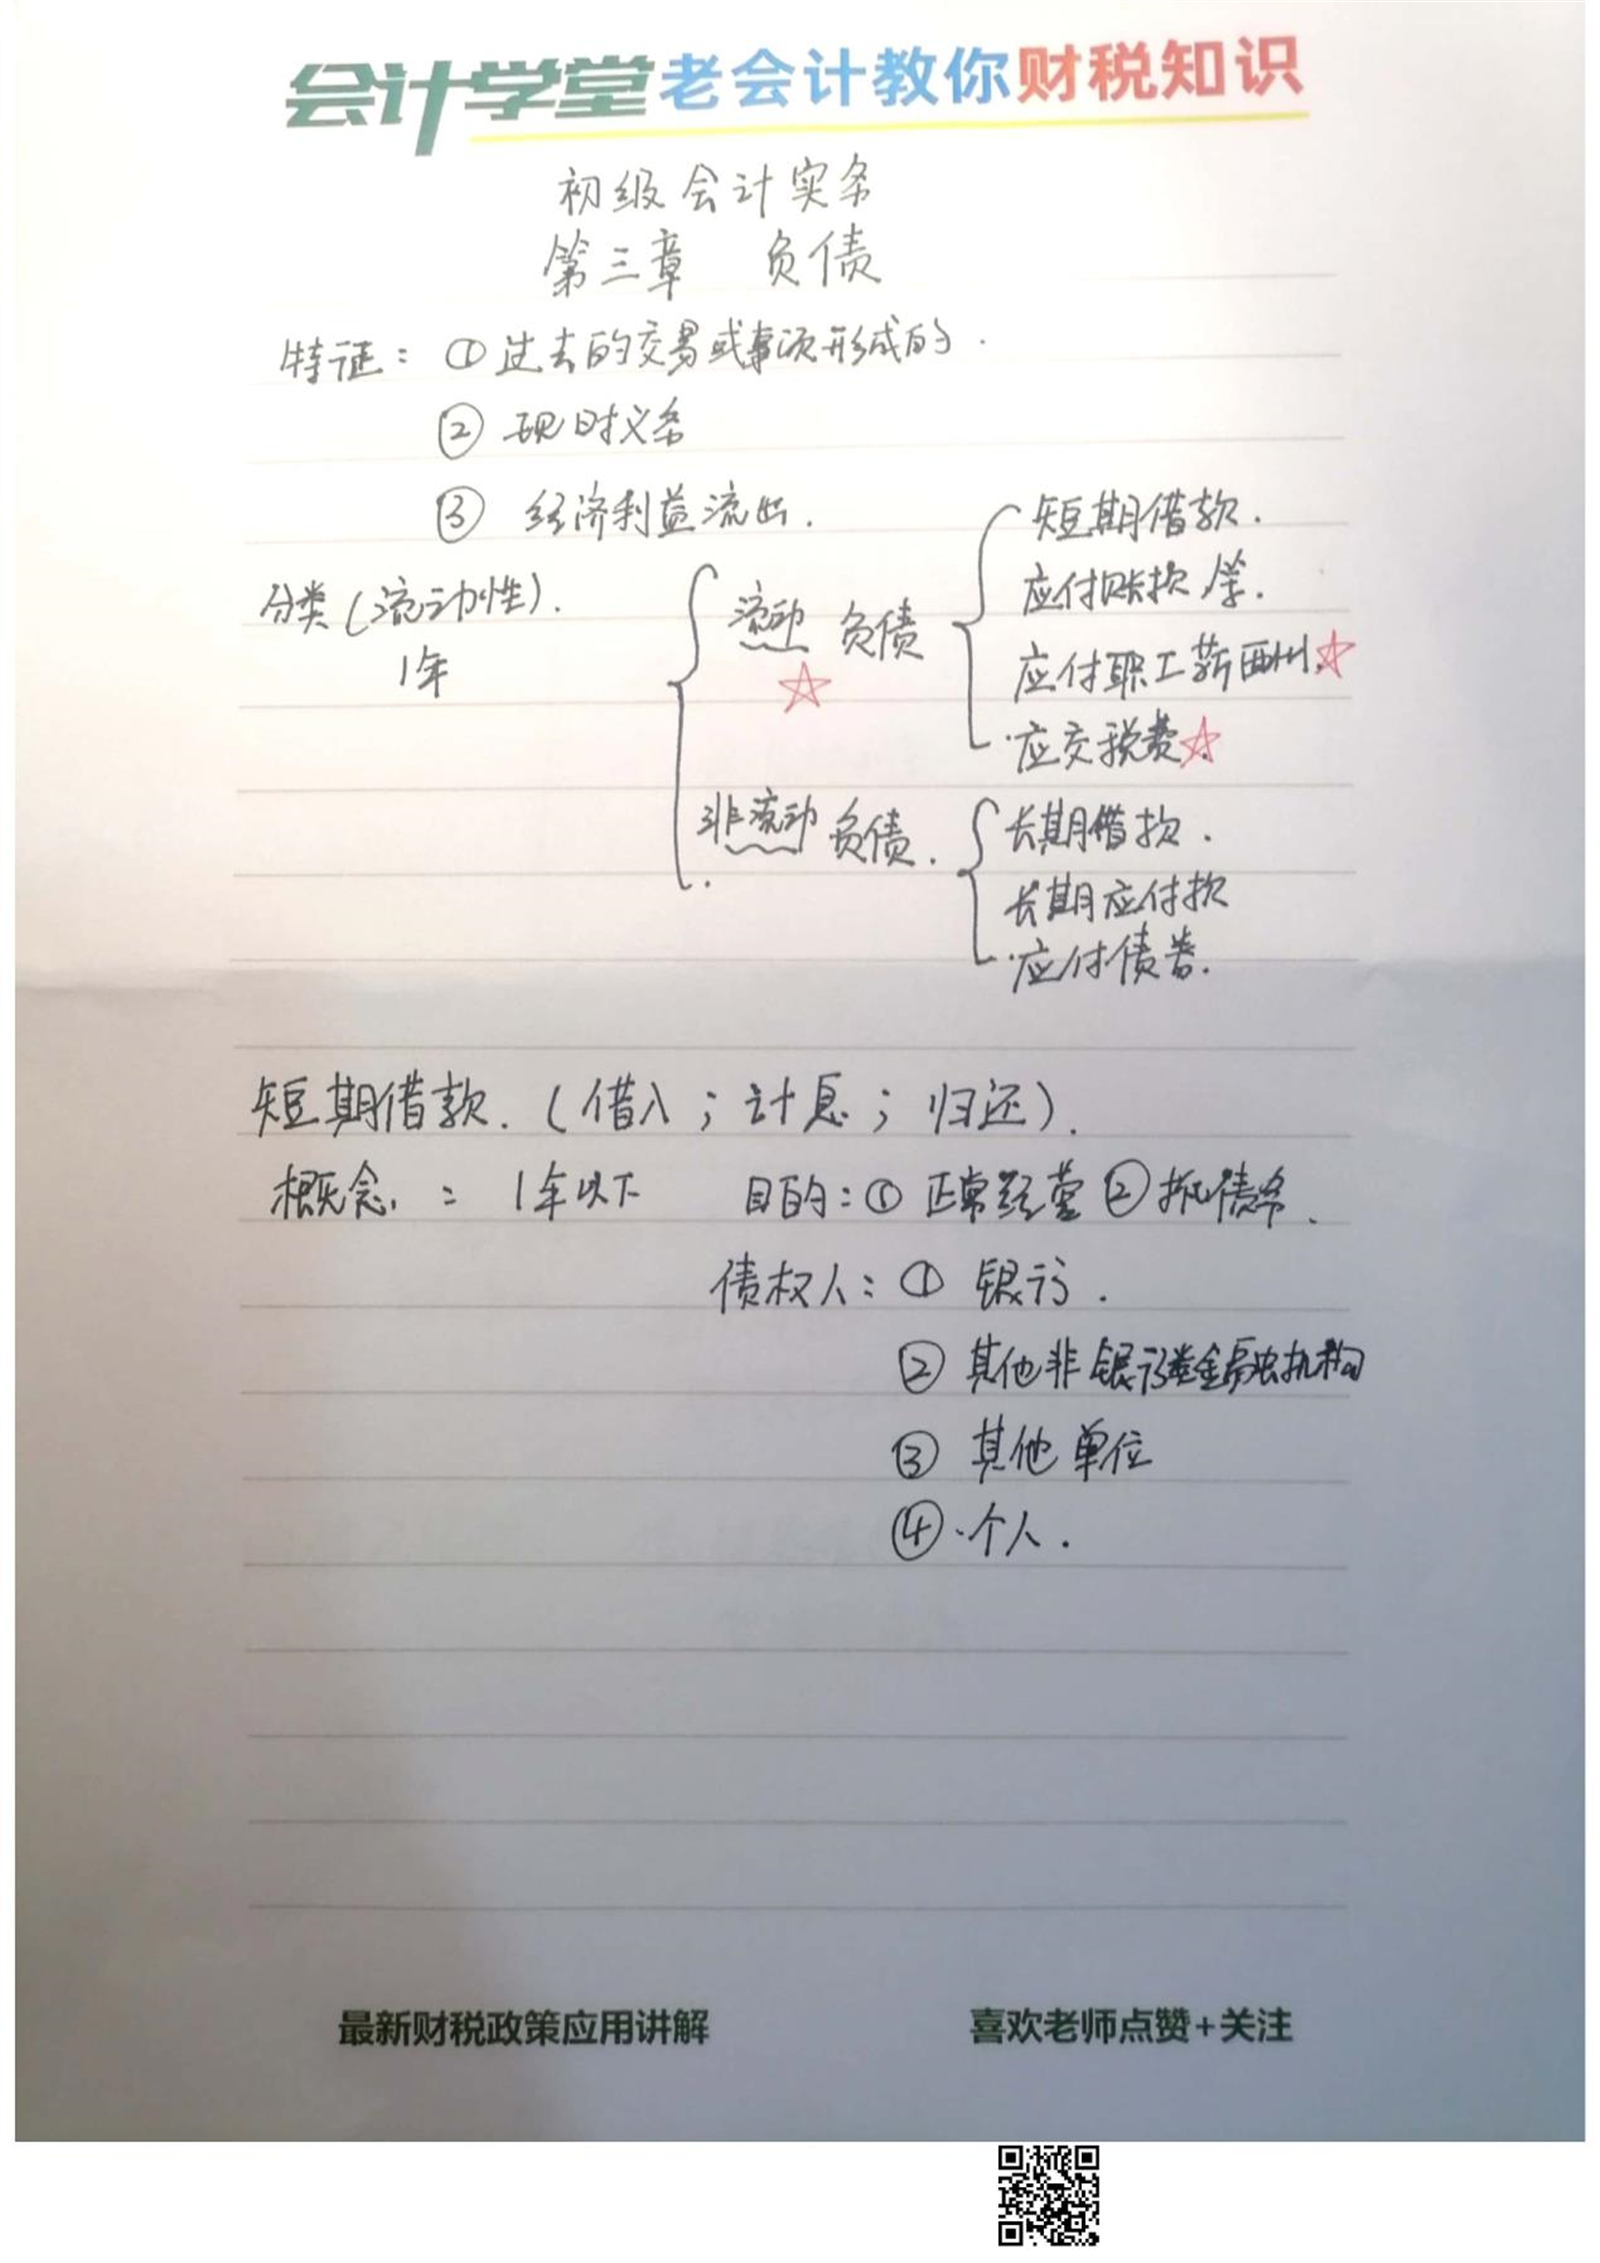 会计学堂老会计教你财税知识
初级会计实务
第三章 负债
特征：①过去的交易或事项形成的.
②现时义务
③经济利益流出.
分类(流动性).
1年
流动负债
短期借款.
应付账款等.
应付职工薪酬.
应交税费.
非流动负债.
长期借款.
长期应付款
应付债券.
短期借款.(借入；计息；归还).
概念：1年以下 目的：①正常经营②抵债务.
债权人：①银行.
②其他非银行类金融机构
③其他单位
④个人.
最新财税政策应用讲解 喜欢老师点赞+关注